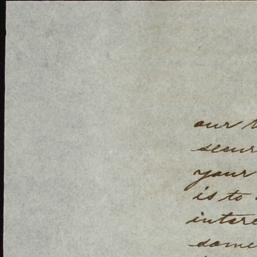 our
secur
your
is to
intere
some